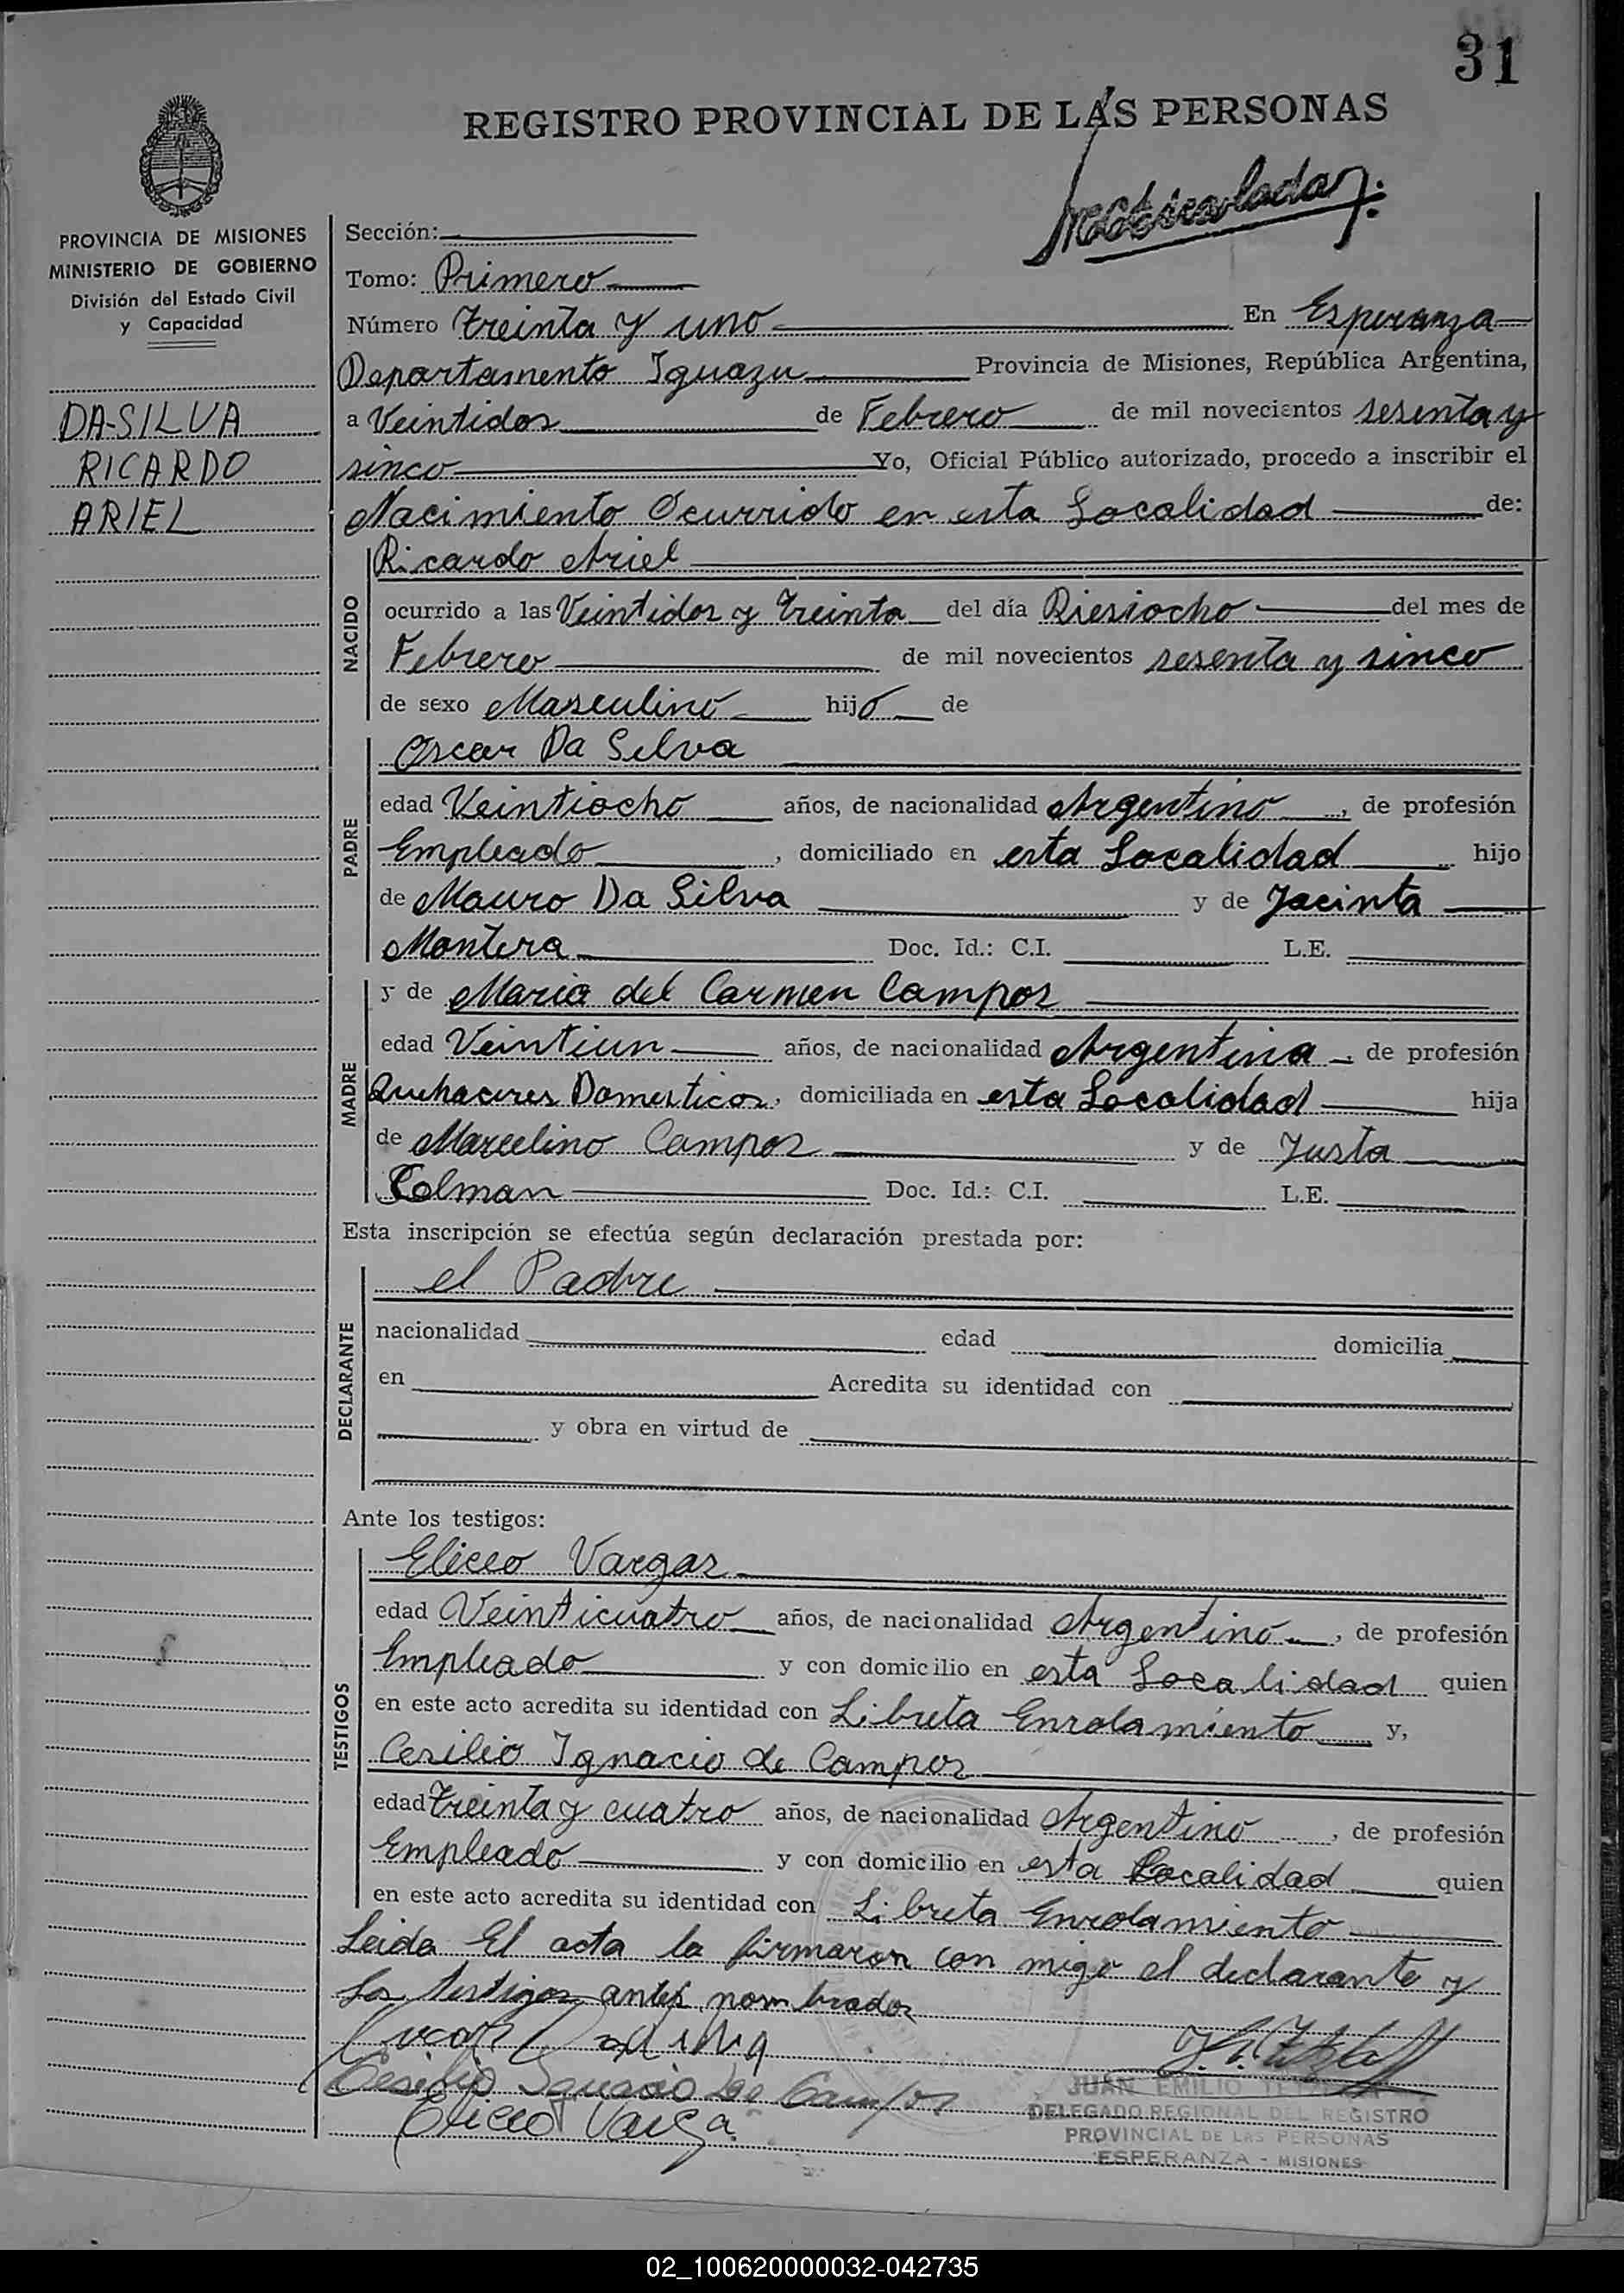 31
REGISTRO PROVINCIAL DE LAS PERSONAS
PROVINCIA DE MISIONES
MINISTERIO DE GOBIERNO
División del Estado Civil
y Capacidad
DA-SILVA
RICARDO
ARIEL
Sección:
Tomo: Primero
Número treinta y uno En Esperanza
Departamento Iguazu Provincia de Misiones, República Argentina,
a Veintidos de Febrero de mil novecientos sesenta y
sinco Yo, Oficial Público autorizado, procedo a inscribir el
Nacimiento Ocurrido en esta Localidad de:
NACIDO
Ricardo Ariel
ocurrido a las Veintidos y treinta del día Diesiocho del mes de
Febrero de mil novecientos sesenta y sinco
de sexo Masculino hijo de
PADRE
Oscar Da Silva
edad Veintiocho años, de nacionalidad Argentino, de profesión
Empleado, domiciliado en esta Localidad hijo
de Mauro Da Silva y de Jacinta
Montera Doc. Id.: C.I. L.E.
MADRE
y de Maria del Carmen Campos
edad Veintiun años, de nacionalidad Argentina, de profesión
Quehaceres Domesticos, domiciliada en esta Localidad hija
de Marcelino Campos y de Justa
Colman Doc. Id.: C.I. L.E.
Esta inscripción se efectúa según declaración prestada por:
DECLARANTE
el Padre
nacionalidad edad domicilia
en Acredita su identidad con
y obra en virtud de
Ante los testigos:
TESTIGOS
Eliceo Vargas
edad Veinticuatro años, de nacionalidad Argentino, de profesión
Empleado y con domicilio en esta Localidad quien
en este acto acredita su identidad con Libreta Enrolamiento y,
Cesilio Ignacio de Campos
edad treinta y cuatro años, de nacionalidad Argentino, de profesión
Empleado y con domicilio en esta Localidad quien
en este acto acredita su identidad con Libreta Enrolamiento
Leida El acta la firmaron con migo el declarante y
Los testigos antes nombrados
Oscar Da Silva
Cesilio Ignacio De Campos
Eliceo Varga
JUAN EMILIO
DELEGADO REGIONAL DEL REGISTRO
PROVINCIAL DE LAS PERSONAS
ESPERANZA - MISIONES
02_100620000032-042735